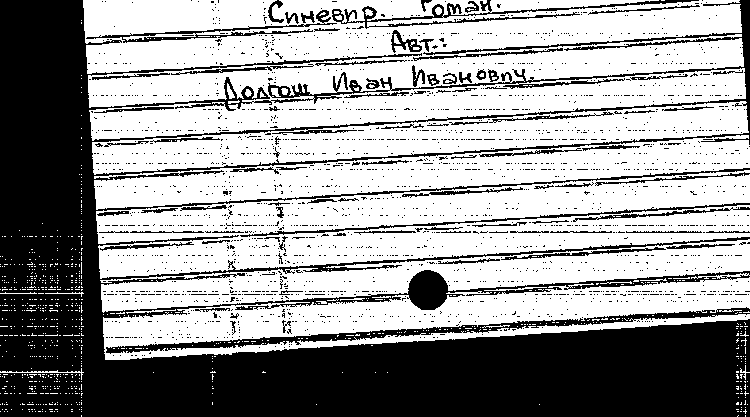 Синевир. Роман.
Авт.:
Долгош, Иван Иванович.